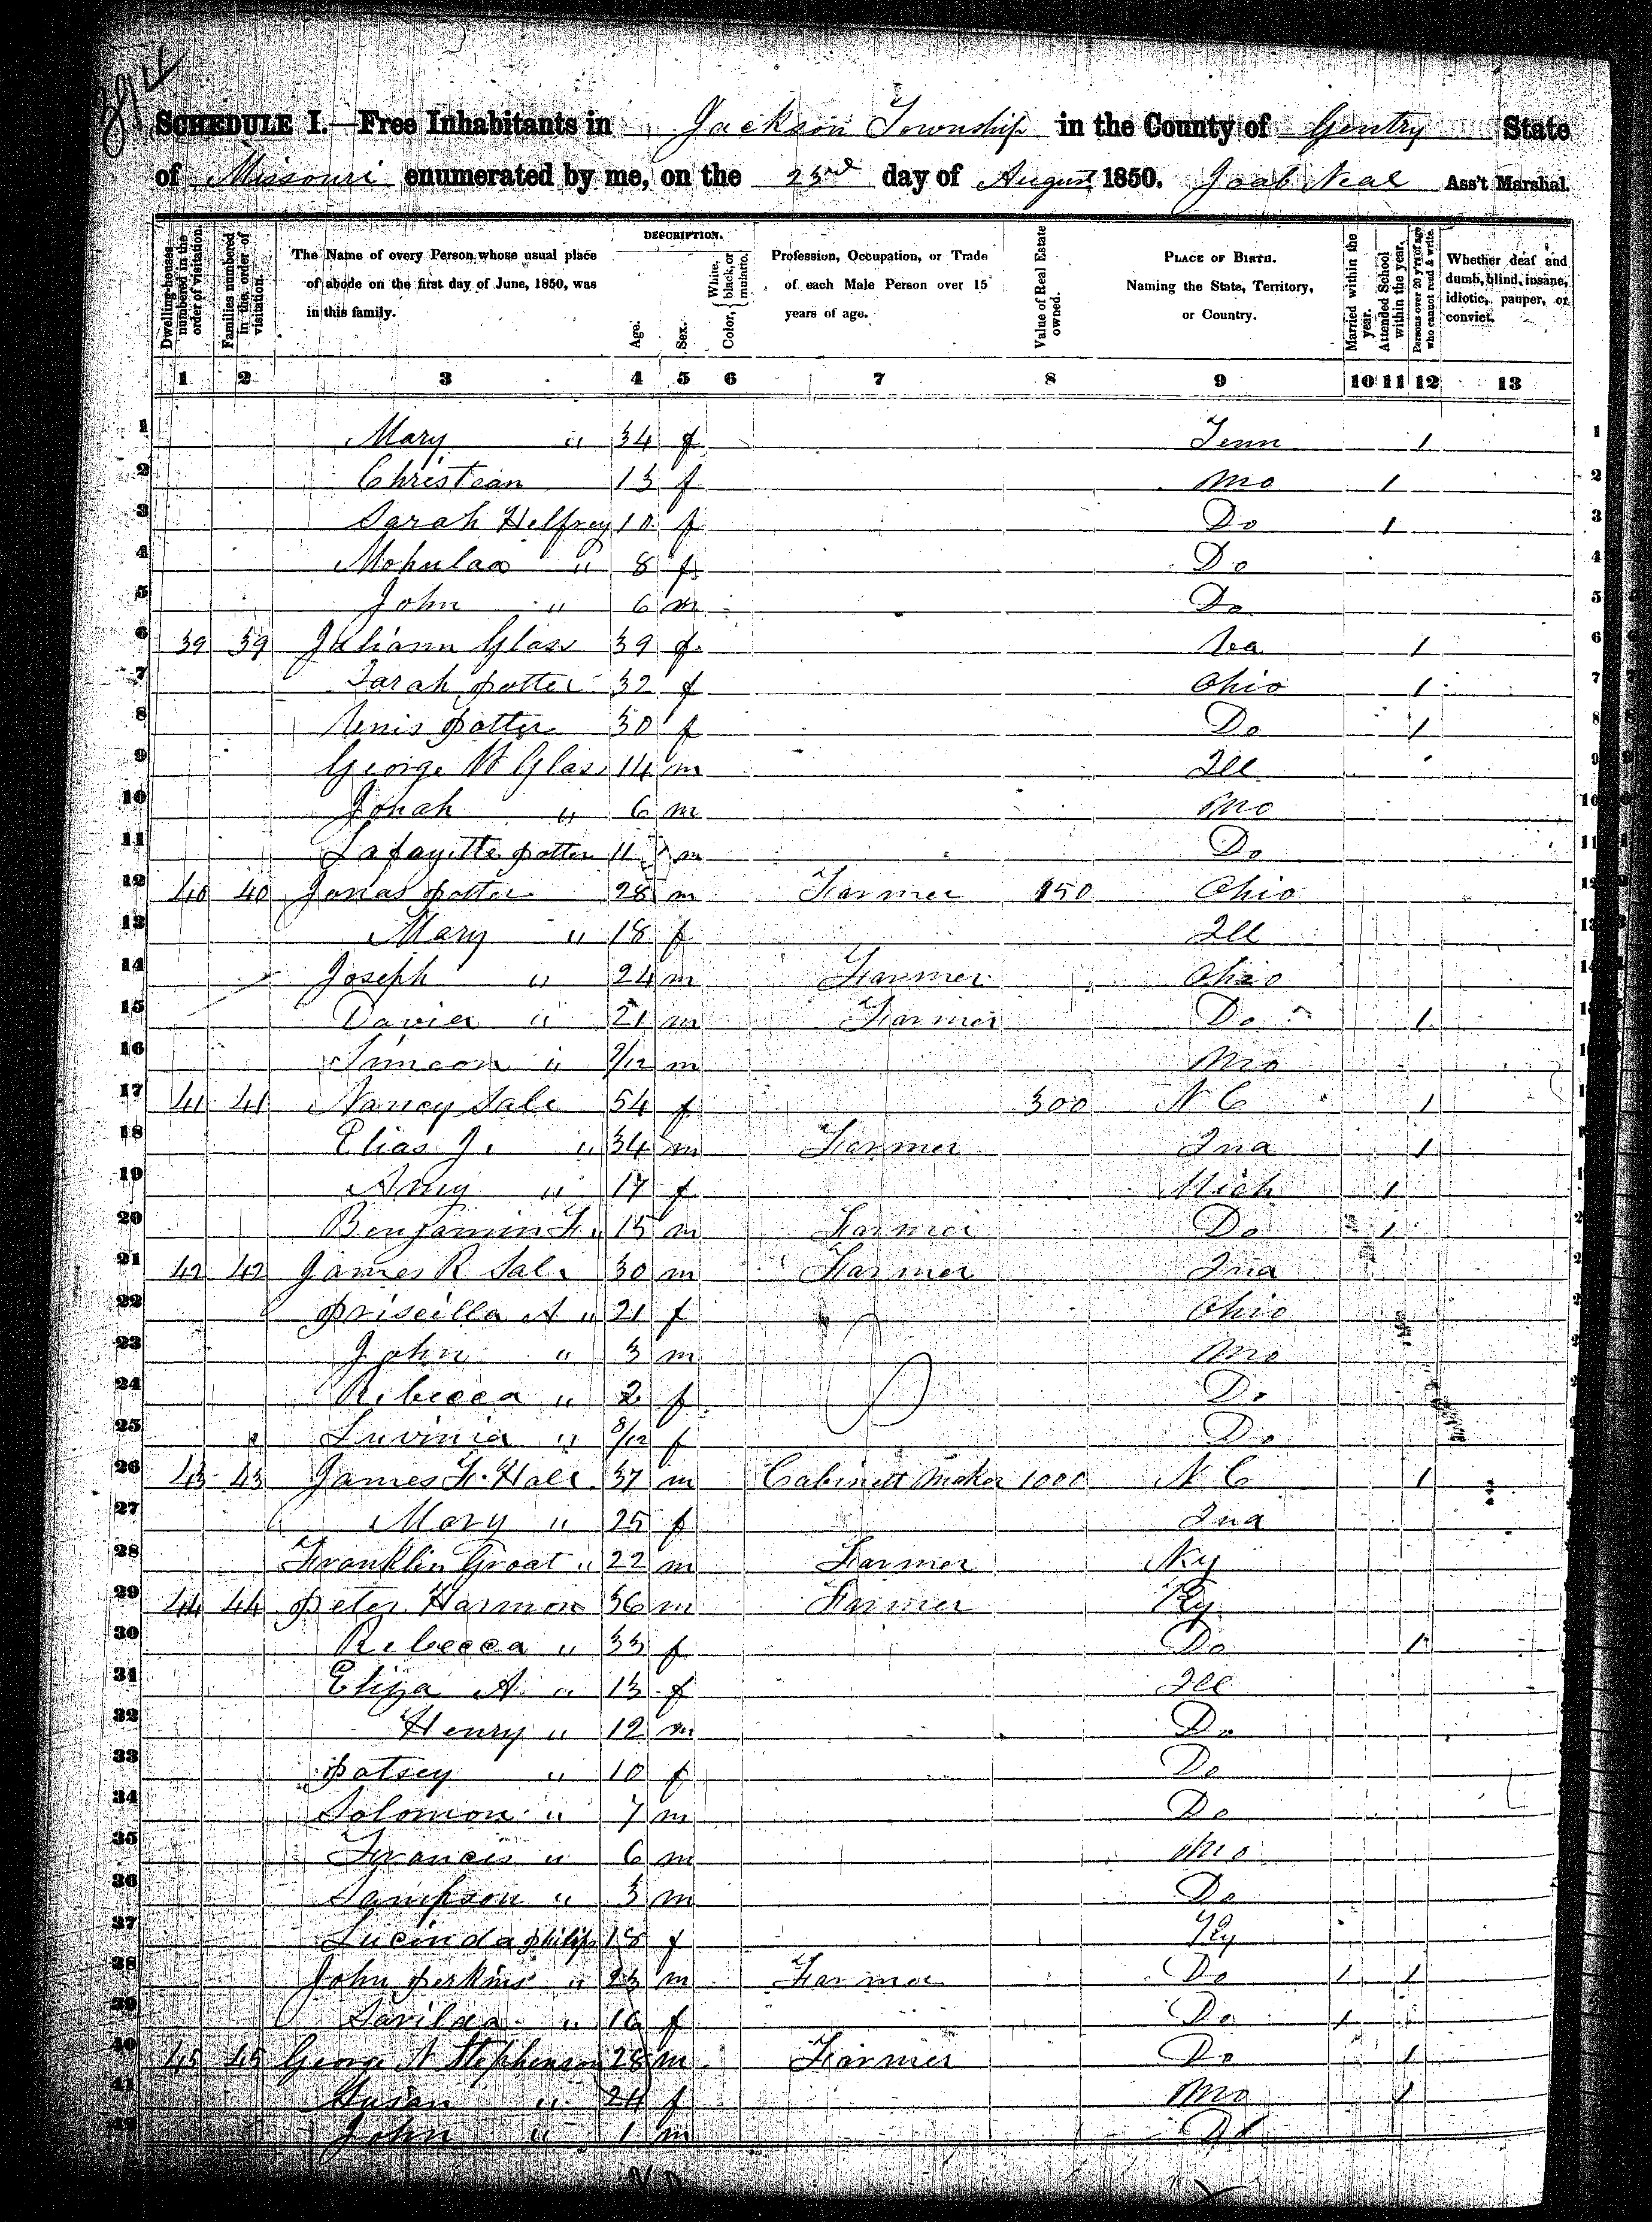 SCHEDULE I.—Free Inhabitants in Jackson Township in the County of Gentry State
of Missouri enumerated by me, on the 23rd day of August 1850. Joab Neal Ass't Marshal.
Dwelling-houses numbered in the order of visitation.
Families numbered in the order of visitation.
The Name of every Person whose usual place of abode on the first day of June, 1850, was in this family.
DESCRIPTION.
Age.
Sex.
Color, { White, black, or mulatto.
Profession, Occupation, or Trade of each Male Person over 15 years of age.
Value of Real Estate owned.
PLACE OF BIRTH. Naming the State, Territory, or Country.
Married within the year.
Attended School within the year.
Persons over 20 y'rs of age who cannot read & write.
Whether deaf and dumb, blind, insane, idiotic, pauper, or convict.
1 2 3 4 5 6 7 8 9 10 11 12 13
1 Mary " 34 f Tenn 1 1
2 Christean 13 f Mo 1 2
3 Sarah Helfrey 10 f Do 1 3
4 " 8 f Do 4
5 John " 6 m Do 5
6 39 39 Juliann Glass 39 f 1 6
7 Sarah potter 32 f Ohio 1 7
8 potter 30 f Do 1 8
9 George W Glass 14 m Ill 9
10 Jonah " 6 m Mo 10
11 Lafayette potter 11 m Do 11
12 40 40 Jonas potter 28 m Farmer 150 Ohio 12
13 Mary " 18 f Ill 13
14 Joseph " 24 m Farmer Ohio 14
15 " 21 m Farmer Do 1
16 Simeon " 9/12 m Mo
17 41 41 Nancy Sale 54 f 300 N C 1
18 Elias J. " 34 m Farmer Ina 1
19 Amy " 17 f Mich 1
20 Benjamin F " 15 m Farmer Do 1
21 42 42 James R Sale 30 m Farmer Ina
22 priscilla A " 21 f Ohio
23 John " 3 m Mo
24 Rebecca " 2 f Do
25 Luvinia " 8/12 f Do
26 43 43 James F. Hale 37 m Cabinett Maker 1000 N C 1
27 Mary " 25 f Ina
28 Franklin Groat " 22 m Farmer
29 44 44 peter Harmon 36 m Farmer Ky
30 Rebecca " 33 f Do 1
31 Eliza A. " 13 f Ill
32 Henry " 12 m Do
33 patsey " 10 f Do
34 Solomon " 7 m Do
35 Francis " 6 m Mo
36 Sampson " 3 m Do
37 Lucinda philips 18 f Ky
38 John perkins " 23 m Farmer Do 1 1
39 Sarilda " 16 f Do 1
40 45 45 George N Stephenson 28 m Farmer Do 1
41 Susan " 24 f Mo 1
42 John " 1 m Do